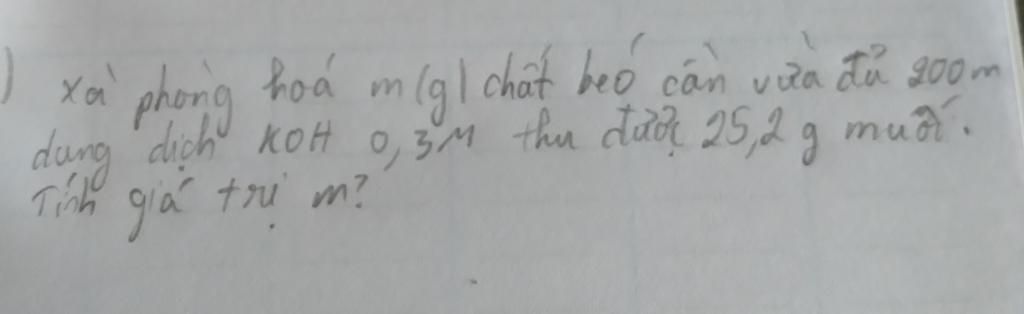 ) xà phòng hoá m(g) chất beó cần vừa đủ 200m
dung dịch KOH 0,3M thu được 25,2 g muối.
Tính giá trị m?